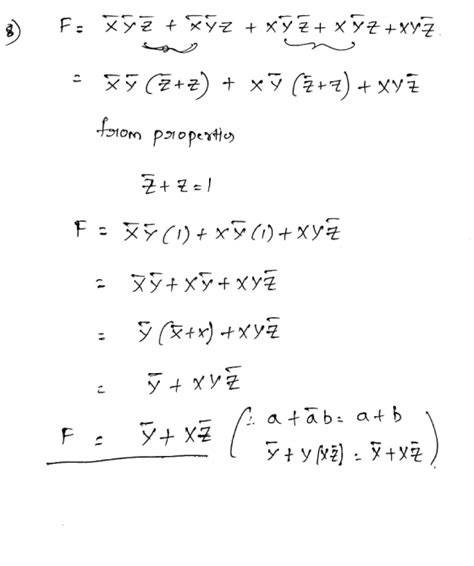 8) F = x̄ȳz̄ + x̄ȳz + xȳz̄ + xȳz + xyz̄
= x̄ȳ(z̄+z) + xȳ(z̄+z) + xyz̄
from properties
z̄ + z = 1
F = x̄ȳ(1) + xȳ(1) + xyz̄
= x̄ȳ + xȳ + xyz̄
= ȳ(x̄+x) + xyz̄
= ȳ + xyz̄
F = ȳ + xz̄ (∵ a + āb = a + b
ȳ + y(xz̄) = ȳ + xz̄)